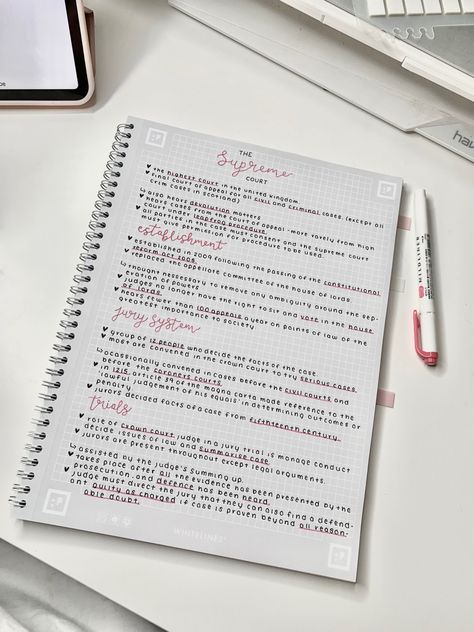 THE
Supreme
COURT
the highest court in the united kingdom.
final court of appeal for all civil and criminal cases. (except all
crim cases in scotland)
also hears devolution matters.
hears cases from the court of appeal - more rarely from high
court under leapfrog procedure.
all parties in the case must consent and the supreme court
must give permission for procedure to be used.
establishment
established in 2009 following the passing of the constitutional
reform act 2005.
replaced the appellate committee of the house of lords.
thought nessessary to remove any ambiguity around the sep-
eration of powers.
judges no longer have the right to sit and vote in the house
of lords.
hears fewer than 100 appeals a year on points of law of the
greatest importance to society.
jury system
group of 12 people who decide the facts of the case.
most are convened in the crown court to try serious cases.
occassionally convened in cases before the civil courts and
before the coroners courts.
in 1215, article 39 of the magna carta made reference to the
'lawful judgement of his equals' in determining outcomes or
penalty
jurors decided facts of a case from fifthteenth century.
trials
role of crown court judge in a jury trial is manage conduct
decide issues of law and summarise case.
jurors are present throughout except legal arguments.
assisted by the judge's summing up.
takes place after all the evidence has been presented by the
prosecution, and defence has been heard.
judge must direct the jury that they can also find a defend-
ant guilty as charged if case is proven beyond all reason-
able doubt.
WHITELINES